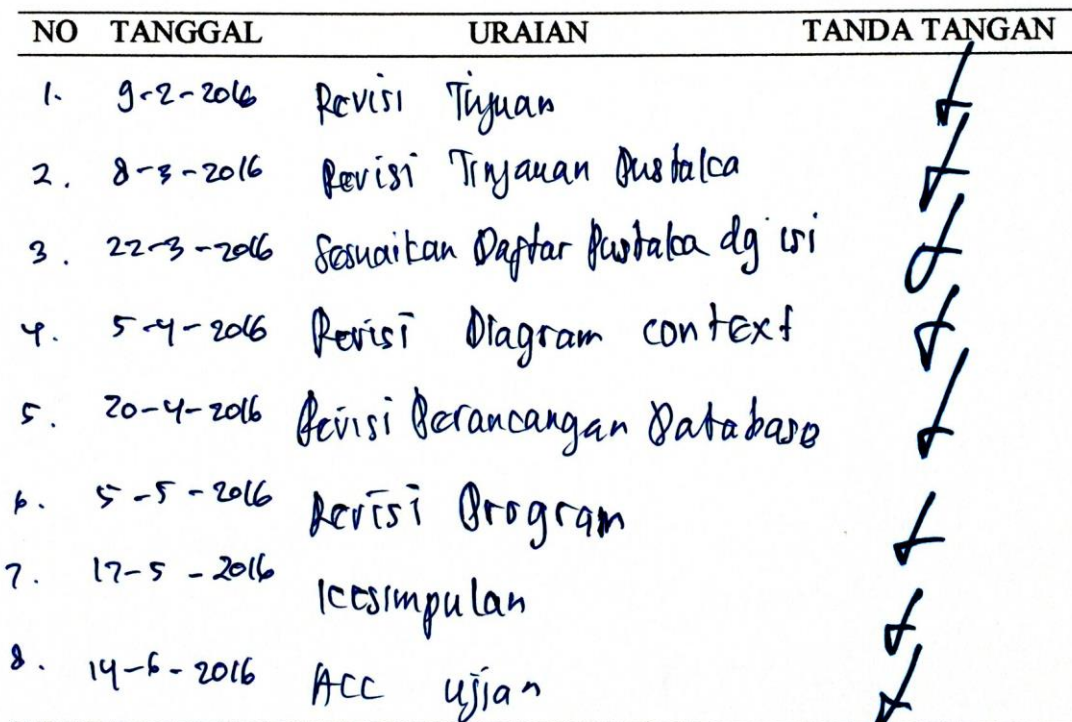 NO TANGGAL URAIAN TANDA TANGAN
1. 9-2-2016 Revisi Tujuan
2. 8-3-2016 Revisi Tinjauan Pustaka
3. 22-3-2016 Sesuaikan Daftar Pustaka dg isi
4. 5-4-2016 Revisi Diagram context
5. 20-4-2016 Revisi Perancangan Database
6. 5-5-2016 Revisi Program
7. 17-5-2016 Kesimpulan
8. 14-6-2016 ACC ujian